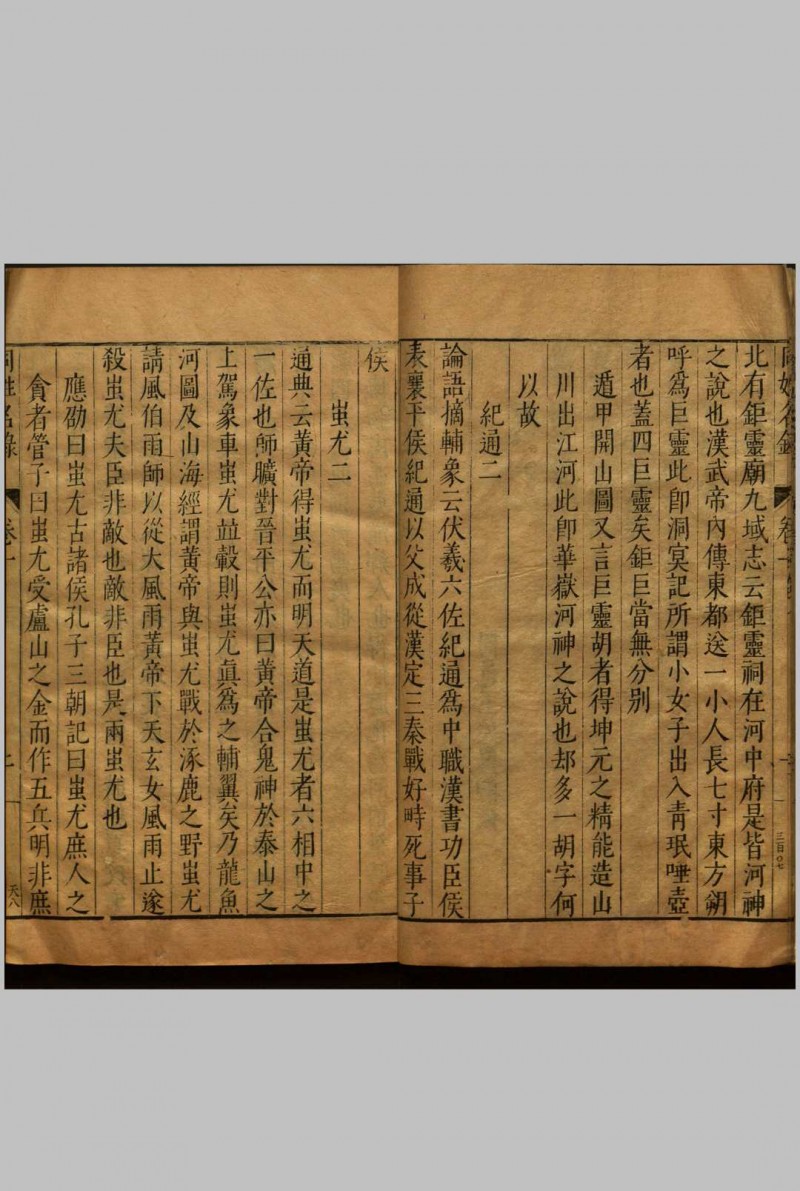 北有鉅靈廟九域志云鉅靈祠在河中府是皆河神
之說也漢武帝內傳東都送一小人長七寸東方朔
呼爲巨靈此卽洞冥記所謂小女子出入靑珉唾壺
者也蓋四巨靈矣鉅巨當無分别
遁甲開山圖又言巨靈胡者得坤元之精能造山
川出江河此卽華嶽河神之說也却多一胡字何
以故
紀通二
論語摘輔象云伏羲六佐紀通爲中職漢書功臣侯
表襄平侯紀通以父成從漢定三秦戰好畤死事子
侯
蚩尤二
通典云黃帝得蚩尤而明天道是蚩尤者六相中之
一佐也師曠對晉平公亦曰黃帝合鬼神於泰山之
上駕象車蚩尤並轂則蚩尤眞爲之輔翼矣乃龍魚
河圖及山海經謂黃帝與蚩尤戰於涿鹿之野蚩尤
請風伯雨師以從大風雨黃帝下天玄女風雨止遂
殺蚩尤夫臣非敵也敵非臣也是兩蚩尤也
應劭曰蚩尤古諸侯孔子三朝記曰蚩尤庶人之
貪者管子曰蚩尤受盧山之金而作五兵明非庶
同姓名錄 卷一